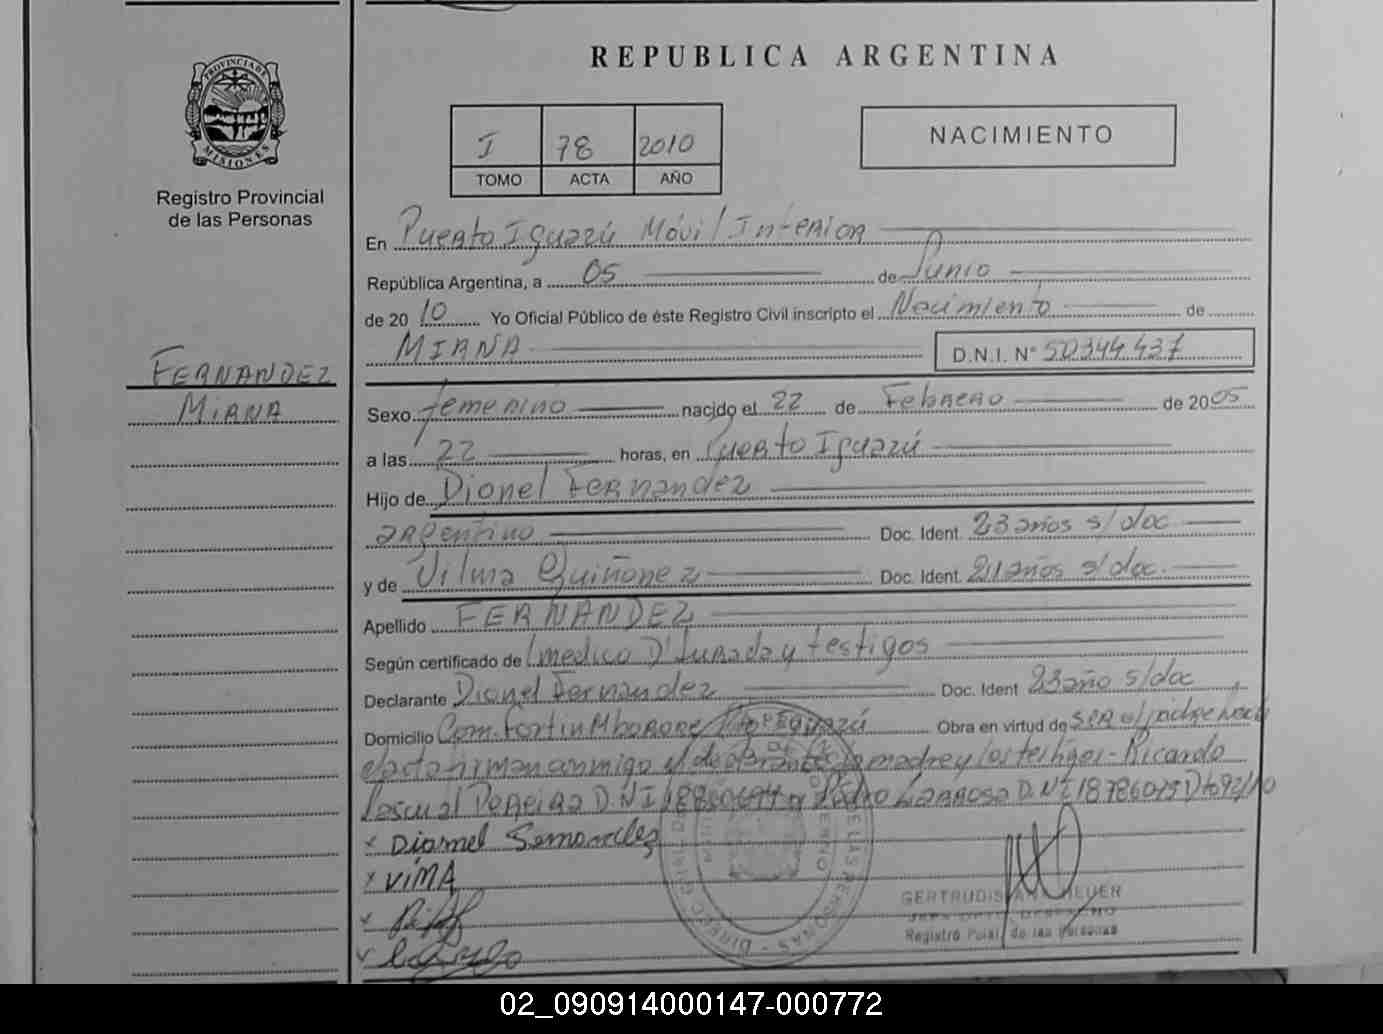 REPUBLICA ARGENTINA
PROVINCIA DE
MISIONES
Registro Provincial
de las Personas
I 78 2010
TOMO ACTA AÑO
NACIMIENTO
En Puerto Iguazú Móvil Interior
República Argentina, a 05 de Junio
de 20 10 Yo Oficial Público de éste Registro Civil inscripto el Nacimiento de
MIRNA D.N.I. N° 50344437
FERNANDEZ
MIRNA
Sexo femenino nacido el 22 de Febrero de 2005
a las 22 horas, en Puerto Iguazú
Hijo de Dionel Fernandez
argentino Doc. Ident. 23 años s/doc
y de Vilma Quiñonez Doc. Ident. 21 años s/doc.
Apellido FERNANDEZ
Según certificado de medico D'Jurada y testigos
Declarante Dionel Fernandez Doc. Ident 23 año s/doc
Domicilio Com. Fortin Mborore Pto Iguazú Obra en virtud de ser el padre
acto firman conmigo el declarante la madre y los testigos - Ricardo
Pascual Pereira D.N.I. y Barrosa D.N.I.
x Dionel Fernandez
x ViMA
x
GERTRUDIS
Registro de las Personas
02_090914000147-000772